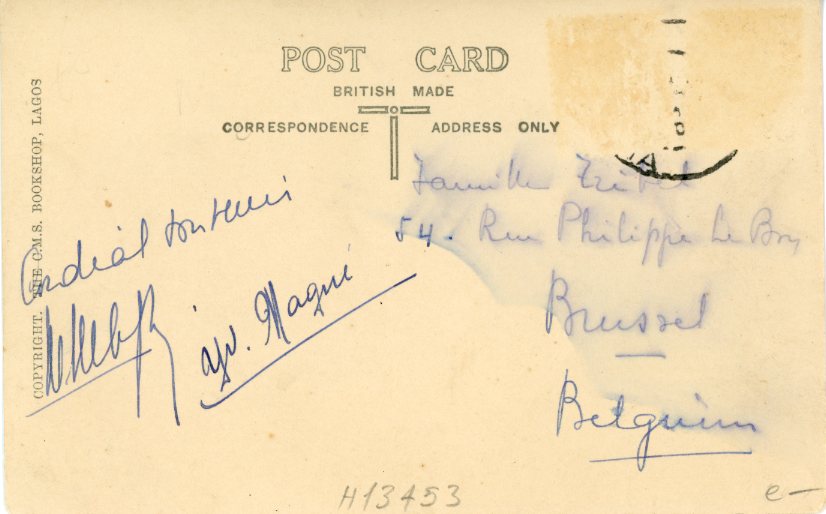 POST CARD
BRITISH MADE
CORRESPONDENCE ADDRESS ONLY
COPYRIGHT. THE C.M.S. BOOKSHOP, LAGOS
Cordial
Yv. Magni
Famille
54. Rue Philippe Le Bon
Brussel
Belguim
H13453
e-